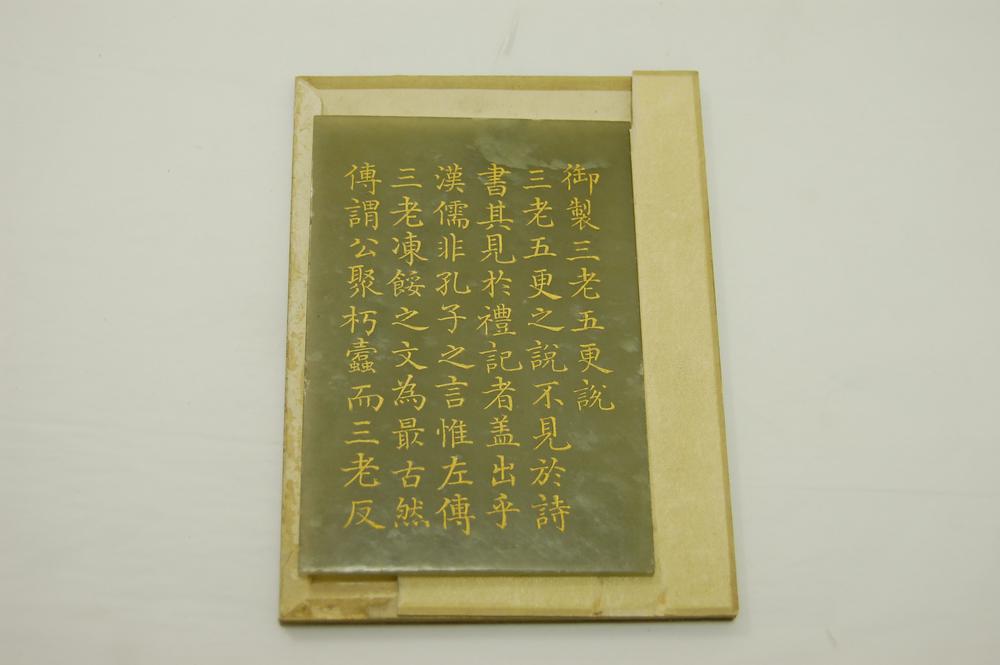 御製三老五更說
三老五更之說不見於詩
書其見於禮記者盖出乎
漢儒非孔子之言惟左傳
三老凍餒之文為最古然
傳謂公聚朽蠹而三老反